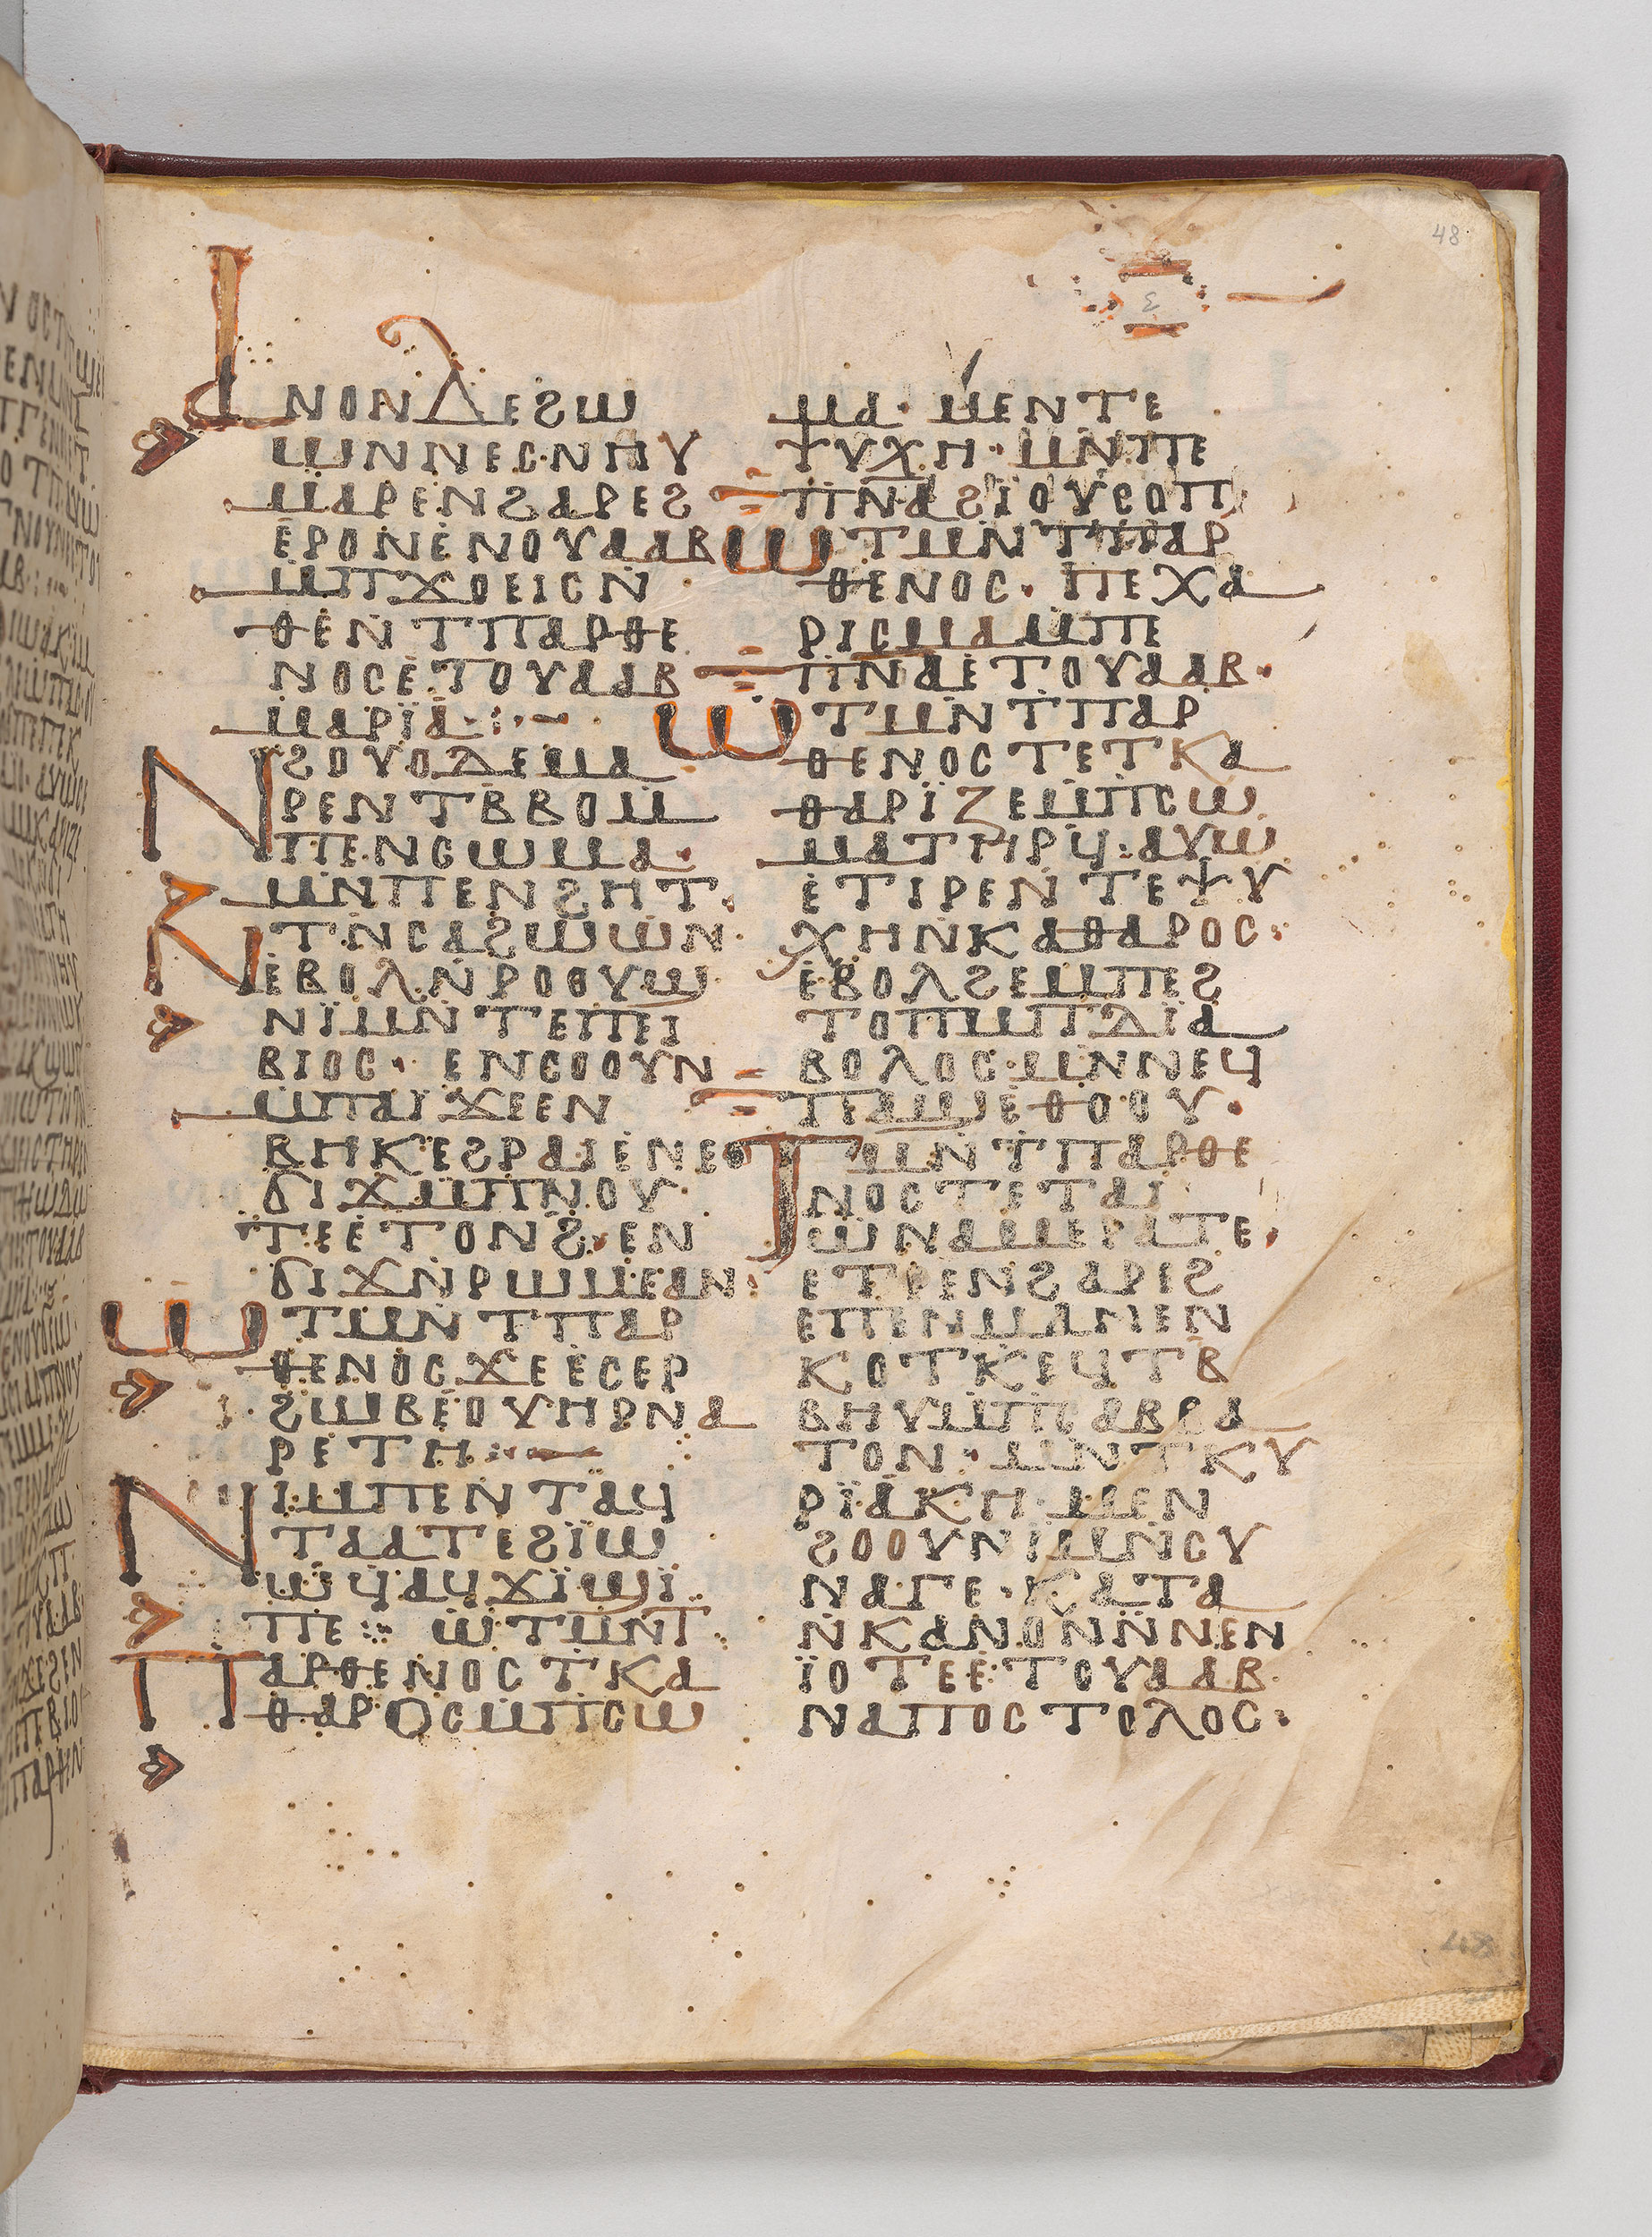 48
ⲁⲛⲟⲛⲇⲉϩⲱ
ⲱⲛⲛⲉⲥⲛⲏⲩ
ⲙⲁⲣⲉⲛϩⲁⲣⲉϩ
ⲉⲣⲟⲛⲉⲛⲟⲩⲁⲁⲃ
ⲙⲡϫⲟⲉⲓⲥⲛ
ⲑⲉⲛⲧⲡⲁⲣⲑⲉ
ⲛⲟⲥⲉⲧⲟⲩⲁⲁⲃ
ⲙⲁⲣⲓⲁ
ⲛϩⲟⲩⲟⲇⲉⲙⲁ
ⲣⲉⲛⲧⲃⲃⲟⲙ
ⲡⲉⲛⲥⲱⲙⲁ·
ⲙⲛⲡⲉⲛϩⲏⲧ
ⲛⲧⲛⲥⲁϩⲱⲱⲛ
ⲉⲃⲟⲗⲛⲣⲟⲟⲩϣ
ⲛⲓⲙⲛⲧⲉⲡⲉⲓ
ⲃⲓⲟⲥ· ⲉⲛⲥⲟⲟⲩⲛ
ⲙⲡⲁⲓϫⲉⲉⲛ
ⲃⲏⲕⲉϩⲣⲁⲓⲉⲛⲉ
ϭⲓϫⲙⲡⲛⲟⲩ
ⲧⲉⲉⲧⲟⲛϩ·ⲉⲛ
ϭⲓϫⲛⲣⲱⲙⲉⲁⲛ:
ⲱⲧⲙⲛⲧⲡⲁⲣ
ⲑⲉⲛⲟⲥϫⲉⲉⲥⲉⲣ
ϩⲱⲃⲉⲟⲩⲏⲣⲛⲁ
ⲣⲉⲧⲏ:
ⲛⲓⲙⲡⲉⲛⲧⲁϥ
ⲧⲁⲁⲧⲉϩⲓⲱ
ⲱϥⲁϥϫⲓϣⲓ
ⲡⲉ: ⲱⲧⲙⲛⲧ
ⲡⲁⲣⲑⲉⲛⲟⲥⲧⲕⲁ
ⲑⲁⲣⲟⲥⲙⲡⲥⲱ
ⲙⲁ· ⲙⲉⲛⲧⲉ
ⲯⲩⲭⲏ·ⲙⲛⲡⲉ
ⲡⲛⲁϩⲓⲟⲩⲥⲟⲡ
ⲱⲧⲙⲛⲧⲡⲁⲣ
ⲑⲉⲛⲟⲥ· ⲡⲉⲭⲁ
ⲣⲓⲥⲙⲁⲙⲡⲉ
ⲡⲛⲁⲉⲧⲟⲩⲁⲁⲃ·
ⲱⲧⲙⲛⲧⲡⲁⲣ
ⲑⲉⲛⲟⲥⲧⲉⲧⲕⲁ
ⲑⲁⲣⲓⲍⲉⲙⲡⲥⲱ
ⲙⲁⲧⲏⲣϥ:ⲁⲩⲱ
ⲉⲧⲓⲣⲉⲛⲧⲉⲯⲩ
ⲭⲏⲛⲕⲁⲑⲁⲣⲟⲥ:
ⲉⲃⲟⲗϩⲉⲙⲡⲉϩ
ⲧⲟⲡⲙⲡⲇⲓⲁ
ⲃⲟⲗⲟⲥ·ⲙⲛⲛⲉϥ
ⲡⲉⲑⲟⲟⲩ·
ⲧⲙⲛⲧⲡⲁⲣⲑⲉ
ⲛⲟⲥⲧⲉⲧⲁⲓ
ⲱⲛⲁⲙⲉⲣⲁⲧⲉ
ⲉⲧⲣⲉⲛϩⲁⲣⲓϩ
ⲉⲡⲉⲛⲙⲁⲛⲉⲛ
ⲕⲟⲧⲕⲉϥⲧⲃ
ⲃⲏⲩⲙⲡⲥⲁⲃⲃⲁ
ⲧⲟⲛ· ⲙⲛⲧⲕⲩ
ⲣⲓⲁⲕⲏ·ⲙⲉⲛ
ϩⲟⲟⲩⲛⲓⲙⲛⲥⲩ
ⲛⲁⲅⲉ·ⲕⲁⲧⲁ
ⲛⲕⲁⲛⲟⲛⲛⲛⲉⲛ
ⲓⲟⲧⲉⲉⲧⲟⲩⲁⲁⲃ
ⲛⲁⲡⲟⲥⲧⲟⲗⲟⲥ·